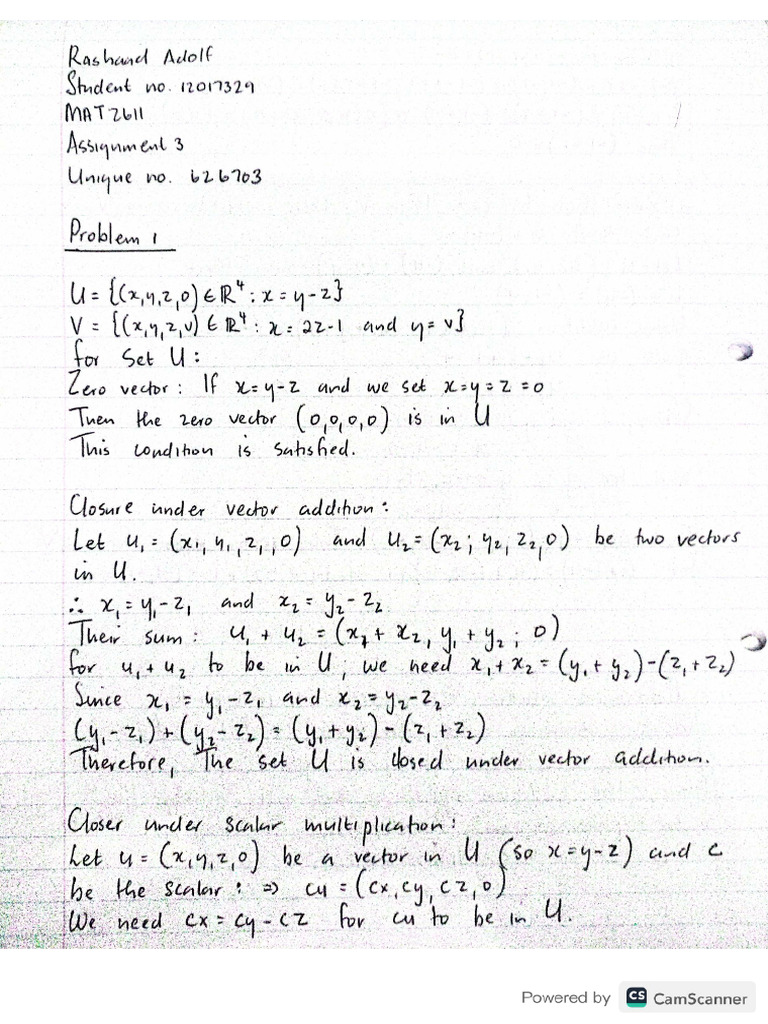 Rashaad Adolf
Student no. 12017329
MAT2611
Assignment 3
Unique no. 626703
Problem 1
U = {(x,y,z,0) ∈ ℝ⁴ : x = y-z}
V = {(x,y,z,v) ∈ ℝ⁴ : x = 2z-1 and y = v}
for Set U :
Zero vector : If x = y-z and we set x=y=z=0
Then the zero vector (0,0,0,0) is in U
This condition is satisfied.
Closure under vector addition :
Let u₁ = (x₁, y₁, z₁, 0) and u₂ = (x₂; y₂, z₂, 0) be two vectors
in U.
∴ x₁ = y₁-z₁ and x₂ = y₂-z₂
Their sum : u₁ + u₂ = (x₁ + x₂, y₁ + y₂ ; 0)
for u₁+u₂ to be in U; we need x₁+x₂ = (y₁+y₂)-(z₁+z₂)
Since x₁ = y₁-z₁ and x₂ = y₂-z₂
(y₁-z₁)+(y₂-z₂) = (y₁+y₂)-(z₁+z₂)
Therefore, The set U is closed under vector addition.
Closer under scalar multiplication :
Let u = (x,y,z,0) be a vector in U (so x=y-z) and c
be the scalar : ⇒ cu = (cx, cy, cz, 0)
We need cx = cy - cz for cu to be in U.
Powered by CS CamScanner